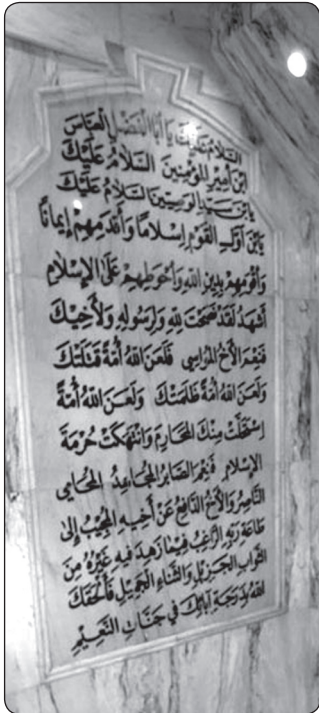 السلام عليك يا أبا الفضل العباس
ابن أمير المؤمنين السلام عليك
يا بن سيد الوصيين السلام عليك
يا بن أول القوم إسلاما وأقدمهم إيمانا
وأقومهم بدين الله وأحوطهم على الإسلام
أشهد لقد نصحت لله ولرسوله ولأخيك
فنعم الأخ المواسي فلعن الله أمة قتلتك
ولعن الله أمة ظلمتك ولعن الله أمة
استحلت منك المحارم وانتهكت حرمة
الإسلام فنعم الصابر المجاهد المحامي
الناصر والأخ الدافع عن أخيه المجيب إلى
طاعة ربه الراغب فيما زهد فيه غيره من
الثواب الجزيل والثناء الجميل فألحقك
الله بدرجة آبائك في جنات النعيم